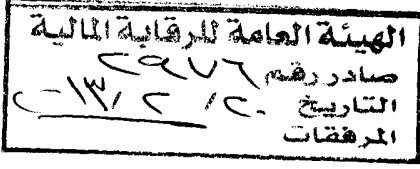 الهيئة العامة للرقابة المالية
صادر رقم ٢٩٧٦
التاريخ ٢٠ / ٢ / ١٣
المرفقات